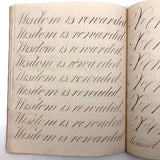 Wisdom is rewarded
Wisdom is rewarded.
Wisdom is rewarded.
Wisdom is rewarded.
Wisdom is rewarded.
Wisdom is rewarded.
Wisdom is rewarded.
Wisdom is rewarded.
Wisdom is rewarded.